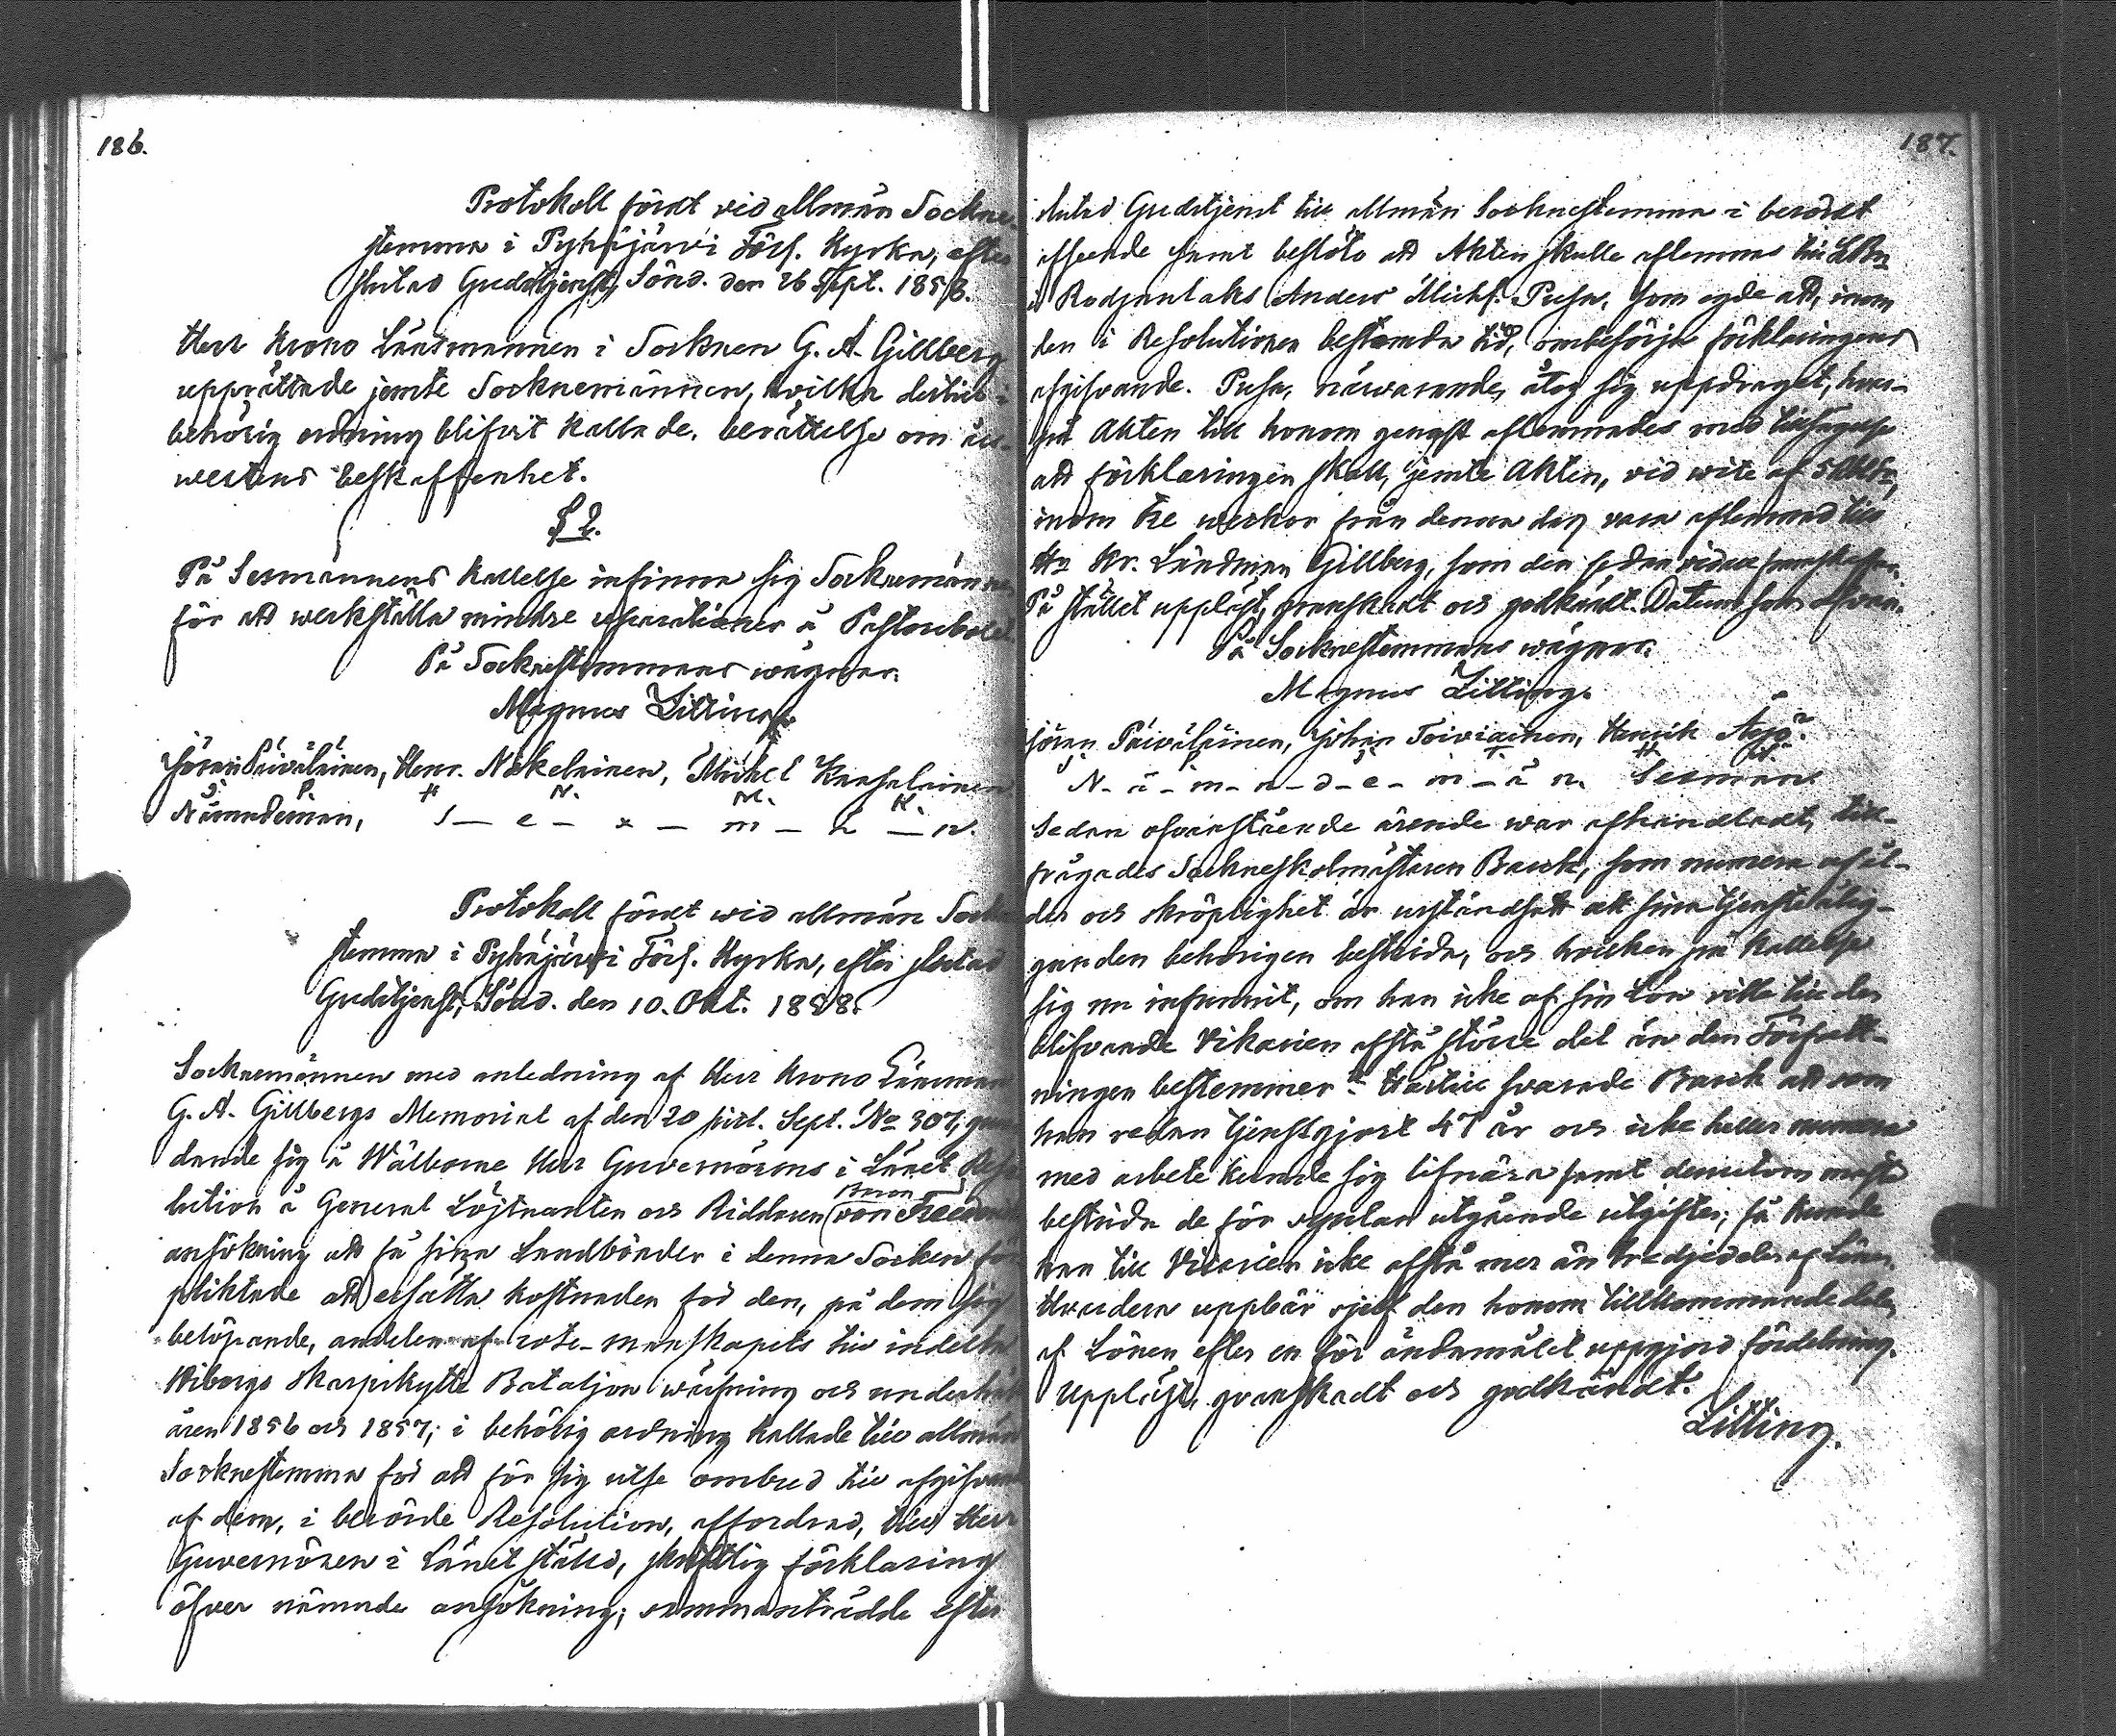 186.
Protokoll fördt vid allmän Sockne-
stemma i Pyhäjärvi Förs. Kyrka, efter
slutad Gudstjenst, Sönd. den 26 Sept. 1858.
Herr Krono Länsmannen i Socknen G. A. Gillberg
upprättade jemte Socknemännen, hvilka dertill i
behörig ordning blifvit kallade, berättelse om års-
wextens beskaffenhet.
§ 2.
På Sexmännens kallelse infinna sig Socknemännen
för att werkställa mindre reparationer å Pastorsbolet
På Socknestemmans wägnar:
Magnus Litting.
Jöran Päiväläinen, Henr. Näkeläinen, Mickel Kaasalainen
J. P. H N. M. K.
Nämndeman, S – e – x – m – ä – n.
Protokoll fördt wid allmän Sockne
stemma i Pyhäjärvi Förs. Kyrka, efter slutad
Gudstjenst, Sönd. den 10. Okt. 1858.
Socknemännen med anledning af Herr Krono Länsman
G. A. Gillbergs Memorial af den 20 sistl. Sept. No 307, grun
dande sig å Wälborne Herr Guvernörens i Länet Reso
lution å General Löjtnanten och Riddaren Baron von
ansökning att få sina Landbönder i denna Socken för
pliktade att ersätta kostnaden för den, på dem sig
belöpande, andelen af rote-manskapets till indelta
Wiborgs Skarpskytte Bataljon wärfning och underhåll
åren 1856 och 1857; i behörig ordning kallade till allmän
Socknestemma för att för sig utse ombud till afgifvande
af dem, i berörde Resolution, affordrad, till Herr
Guvernören i Länet ställd, skriftlig förklaring
öfver nämnde ansökning; sammanträdde efter
187.
slutad Gudstjenst till allmän Socknestemma i berördt
afseende samt beslöto att Akten skulle aflemnas till
Anders Michs. Pusa, som egde att, inom
den i Resolutionen bestämda tid, ombesörja förklaringens
afgifvande. Pusa, närvarande, åtog sig uppdraget, hwar-
på Akten till honom genast aflemnades med tillsägelse
att förklaringen skall, jemte Akten, vid wite af 5
inom tre weckor från denna dag vara aflemnad till
Hr Kr. Länsman Gillberg, som den sedan vidare
På stället uppläst, granskadt och godkändt. Datum som ofvan.
På Socknestemmans wägnar:
Magnus Litting.
Jöran Päiväläinen, Johan Toiviainen, Henrik Äijö.
J. P. J. T. H Ä.
N – ä – m – n – d – e – m – ä – n. Sexman
Sedan ofvanstående ärende war afhandladt, till-
frågades Sockneskolmästaren Barck, som numera af ål-
der och skröplighet är urståndsatt att sina tjensteålig-
ganden behörigen bestrida, och hvilken på kallelse
sig nu infunnit, om han icke af sin Lön ville till den
blifvande Vikarien afstå större del än den Författ-
ningen bestemmer? Härtill svarade Barck att som
han redan tjenstgjort 47 år och icke heller numera
med arbete kunde sig lifnära samt dessutom måste
bestrida de för utgående utgifter; så kunde
han till Vikarien icke afstå mer än tredjedelen af Lönen.
Hvardera uppbär sjelf den honom tillkommande delen
af Lönen efter en för ändamålet uppgjord fördelning.
Uppläst, granskadt och godkändt.
Litting.